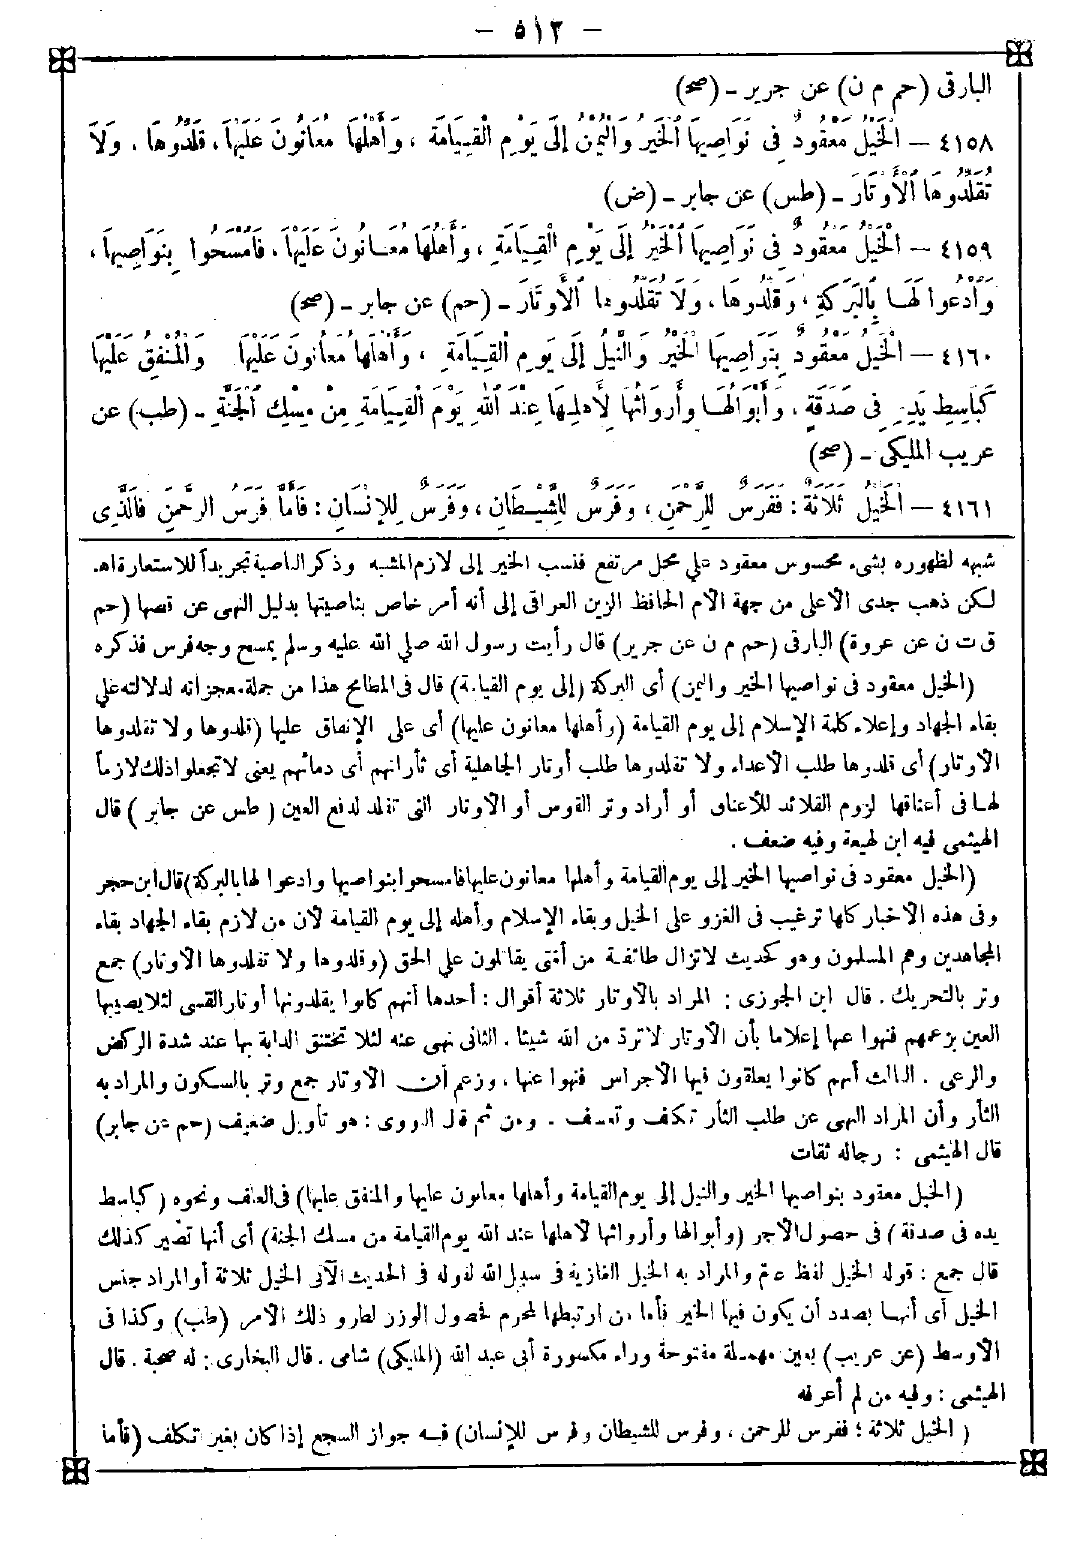 - ٥١٢ -
البارقى (حم م ن) عن جرير - (صح)
٤١٥٨ - الْخَيْلُ مَعْقُودٌ فِى نَوَاصِيهَا الْخَيْرُ وَالْيُمْنُ إِلَى يَوْمِ الْقِيَامَةِ ، وَأَهْلُهَا مُعَانُونَ عَلَيْهَا، قَلِّدُوهَا ، وَلَا
تُقَلِّدُوهَا الْأَوْتَارَ - (طس) عن جابر - (ض)
٤١٥٩ - الْخَيْلُ مَعْقُودٌ فِى نَوَاصِيهَا الْخَيْرُ إِلَى يَوْمِ الْقِيَامَةِ ، وَأَهْلُهَا مُعَانُونَ عَلَيْهَا، فَامْسَحُوا بِنَوَاصِيهَا،
وَادْعُوا لَهَا بِالْبَرَكَةِ ، وَقَلِّدُوهَا ، وَلَا تُقَلِّدُوهَا الْأَوْتَارَ - (حم) عن جابر - (صح)
٤١٦٠ - الْخَيْلُ مَعْقُودٌ بِنَوَاصِيهَا الْخَيْرُ وَالنَّيْلُ إِلَى يَوْمِ الْقِيَامَةِ ، وَأَهْلُهَا مُعَانُونَ عَلَيْهَا وَالْمُنْفِقُ عَلَيْهَا
كَبَاسِطِ يَدِهِ فِى صَدَقَةٍ ، وَأَبْوَالُهَا وَأَرْوَاثُهَا لِأَهْلِهَا عِنْدَ اللهِ يَوْمَ الْقِيَامَةِ مِنْ مِسْكِ الْجَنَّةِ - (طب) عن
عريب المليكى - (صح)
٤١٦١ - الْخَيْلُ ثَلَاثَةٌ : فَفَرَسٌ لِلرَّحْمَنِ ، وَفَرَسٌ لِلشَّيْطَانِ ، وَفَرَسٌ لِلْإِنْسَانِ : فَأَمَّا فَرَسُ الرَّحْمَنِ فَالَّذِى
شبهه لظهوره بشىء محسوس معقود على محل مرتفع فنسب الخير إلى لازم المشبه وذكر الناصية تجريداً للاستعارة اهـ
لكن ذهب جدى الأعلى من جهة الأم الحافظ الزين العراقى إلى أنه أمر خاص بناصيتها بدليل النهى عن قصها (حم
ق ت ن عن عروة) البارقى (حم م ن عن جرير) قال رأيت رسول الله صلى الله عليه وسلم يمسح وجه فرس فذكره
(الخيل معقود فى نواصيها الخير واليمن) أى البركة (إلى يوم القيامة) قال فى المطامح هذا من جملة معجزاته لدلالته على
بقاء الجهاد وإعلاء كلمة الإسلام إلى يوم القيامة (وأهلها معانون عليها) أى على الإنفاق عليها (قلدوها ولا تقلدوها
الأوتار) أى قلدوها طلب الأعداء ولا تقلدوها طلب أوتار الجاهلية أى ثأراتهم أى دمائهم يعنى لا تجعلوا ذلك لازماً
لها فى أعناقها لزوم القلائد للأعناق أو أراد وتر القوس أو الأوتار التى تقلد لدفع العين (طس عن جابر) قال
الهيثمى فيه ابن لهيعة وفيه ضعف .
(الخيل معقود فى نواصيها الخير إلى يوم القيامة وأهلها معانون عليها فامسحوا بنواصيها وادعوا لها بالبركة) قال ابن حجر
وفى هذه الأخبار كلها ترغيب فى الغزو على الخيل وبقاء الإسلام وأهله إلى يوم القيامة لأن من لازم بقاء الجهاد بقاء
المجاهدين وهم المسلمون وهو كحديث لا تزال طائفة من أمتى يقاتلون على الحق (وقلدوها ولا تقلدوها الأوتار) جمع
وتر بالتحريك . قال ابن الجوزى : المراد بالأوتار ثلاثة أقوال : أحدها أنهم كانوا يقلدونها أوتار القسى لئلا يصيبها
العين بزعمهم فنهوا عنها إعلاما بأن الأوتار لا تردّ من الله شيئا . الثانى نهى عنه لئلا تختنق الدابة بها عند شدة الركض
والرعى . الثالث أنهم كانوا يعلقون فيها الأجراس فنهوا عنها ، وزعم أن الأوتار جمع وتر بالسكون والمراد به
الثأر وأن المراد النهى عن طلب الثأر تكلف وتعسف . ومن ثم قال النووى : هو تأويل ضعيف (حم عن جابر)
قال الهيثمى : رجاله ثقات
(الخيل معقود بنواصيها الخير والنيل إلى يوم القيامة وأهلها معانون عليها والمنفق عليها) فى العلف ونحوه (كباسط
يده فى صدقة) فى حصول الأجر (وأبوالها وأرواثها لأهلها عند الله يوم القيامة من مسك الجنة) أى أنها تصير كذلك
قال جمع : قوله الخيل لفظ عام والمراد به الخيل الغازية فى سبيل الله لقوله فى الحديث الآتى الخيل ثلاثة أو المراد جنس
الخيل أى أنها بصدد أن يكون فيها الخير فأما من ارتبطها لمحرم فحصول الوزر لطرو ذلك الأمر (طب) وكذا فى
الأوسط (عن عريب) بعين مهملة مفتوحة وراء مكسورة أبى عبد الله (المليكى) شامى . قال البخارى : له صحبة . قال
الهيثمى : وفيه من لم أعرفه
(الخيل ثلاثة : ففرس للرحمن ، وفرس للشيطان وفرس للإنسان) فيه جواز السجع إذا كان بغير تكلف (فأما